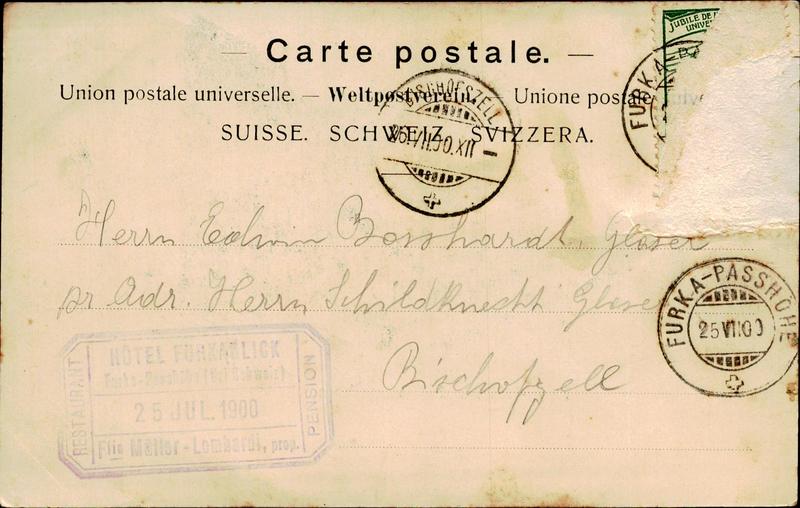 JUBILÉ DE
UNIVE
— Carte postale. —
Union postale universelle. — Weltpostverein. Unione postale
SUISSE. SCHWEIZ. SVIZZERA.
BISCHOFSZELL
26.VII.00.XII
FURKA
Herrn Edwin Bosshardt, Glaser
pr Adr. Herrn Schildknecht Glaser
Bischofzell
FURKA-PASSHÖHE
25 VII.00
HÔTEL FURKABLICK
Furka-Passhöhe (Uri Schweiz)
25 JUL. 1900
Müller-Lombardi, prop.
RESTAURANT
PENSION